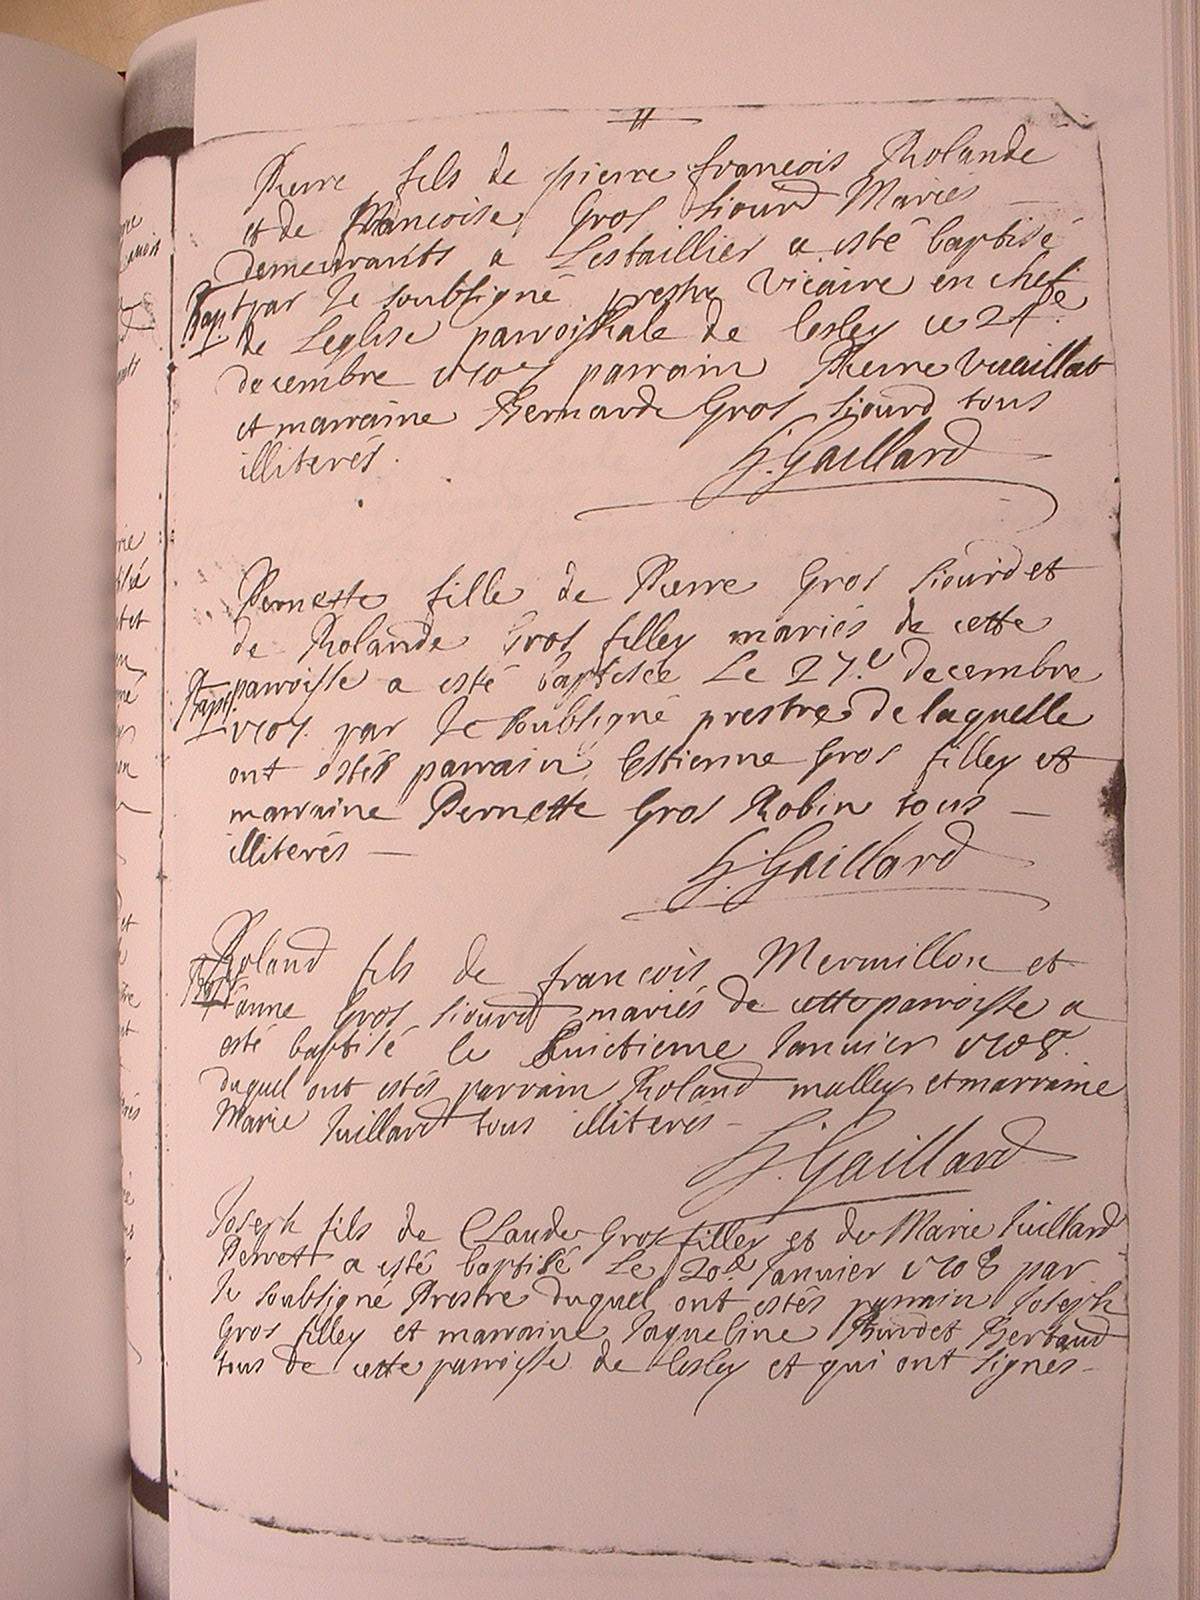 11
Pierre fils de pierre francois Rolande
et de francoise Gros Siourd Mariés
demeurants a Lestaillier a esté baptisé
Bapt. par Je soubsigné prestre vicaire en chef
de Leglise parroissiale de Lesley ce 24e
decembre 1707 parrain Pierre Vuaillat
et marraine Bernarde Gros Siourd tous
illiterés.
G. Gaillard
Pernette fille de Pierre Gros Siourd et
de Rolande Gros filley mariés de cette
Bapt. parroisse a esté baptisée Le 27.e decembre
1707 par Je soubsigné prestre de laquelle
ont estés parrain Estienne Gros filley et
marraine Pernette Gros Robin tous
illiterés
G. Gaillard
Roland fils de francois Mermillon et
Bapt. anne Gros Siourd mariés de cette parroisse a
esté baptisé le huictieme Janvier 1708.
duquel ont estés parrain Roland malley et marraine
Marie Juillard tous illiterés
G. Gaillard
Joseph fils de Claude Gros filley et de Marie Juillard
Perrett a esté baptisé Le 20e Janvier 1708 par
Je soubsigné Prestre duquel ont estés parrain Joseph
Gros filley et marraine Jaqueline Bertaud
tous de cette parroisse de Lesley et qui ont signés